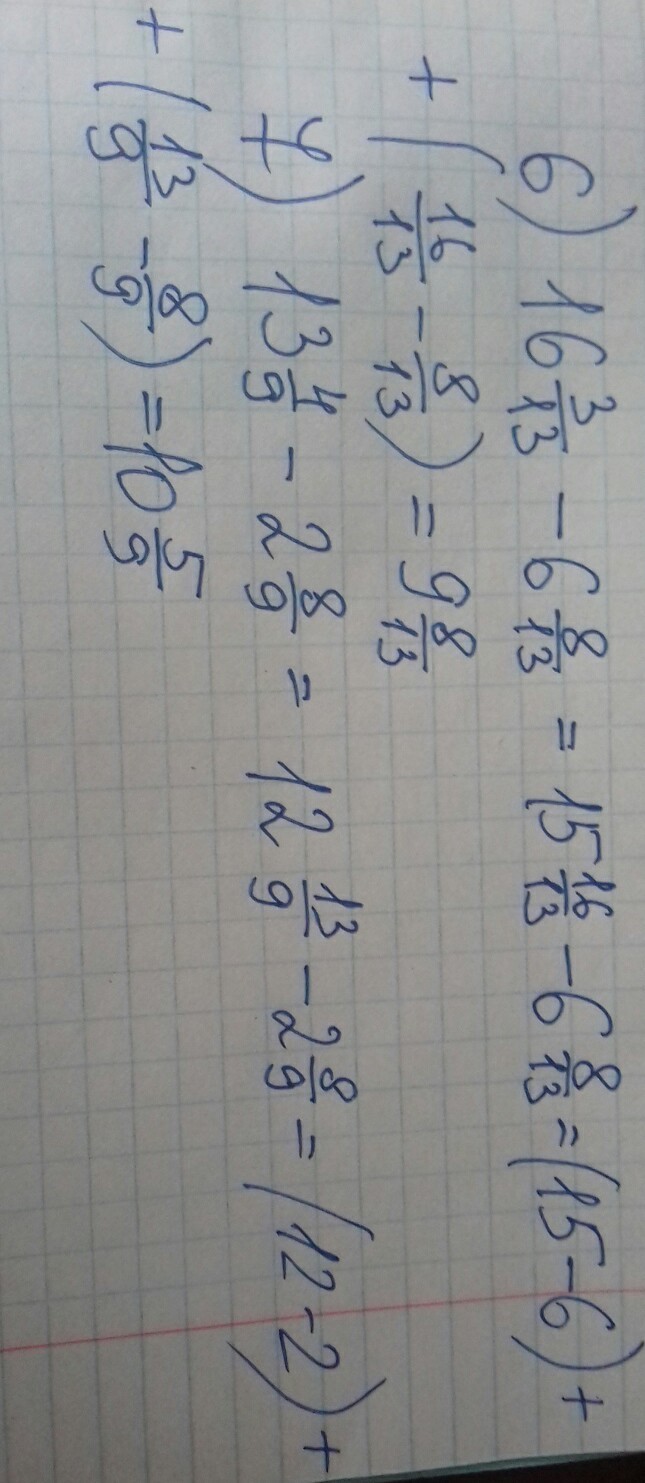 6) 16 3/13 - 6 8/13 = 15 16/13 - 6 8/13 = (15 - 6) +
+ (16/13 - 8/13) = 9 8/13
7) 13 4/9 - 2 8/9 = 12 13/9 - 2 8/9 = (12 - 2) +
+ (13/9 - 8/9) = 10 5/9